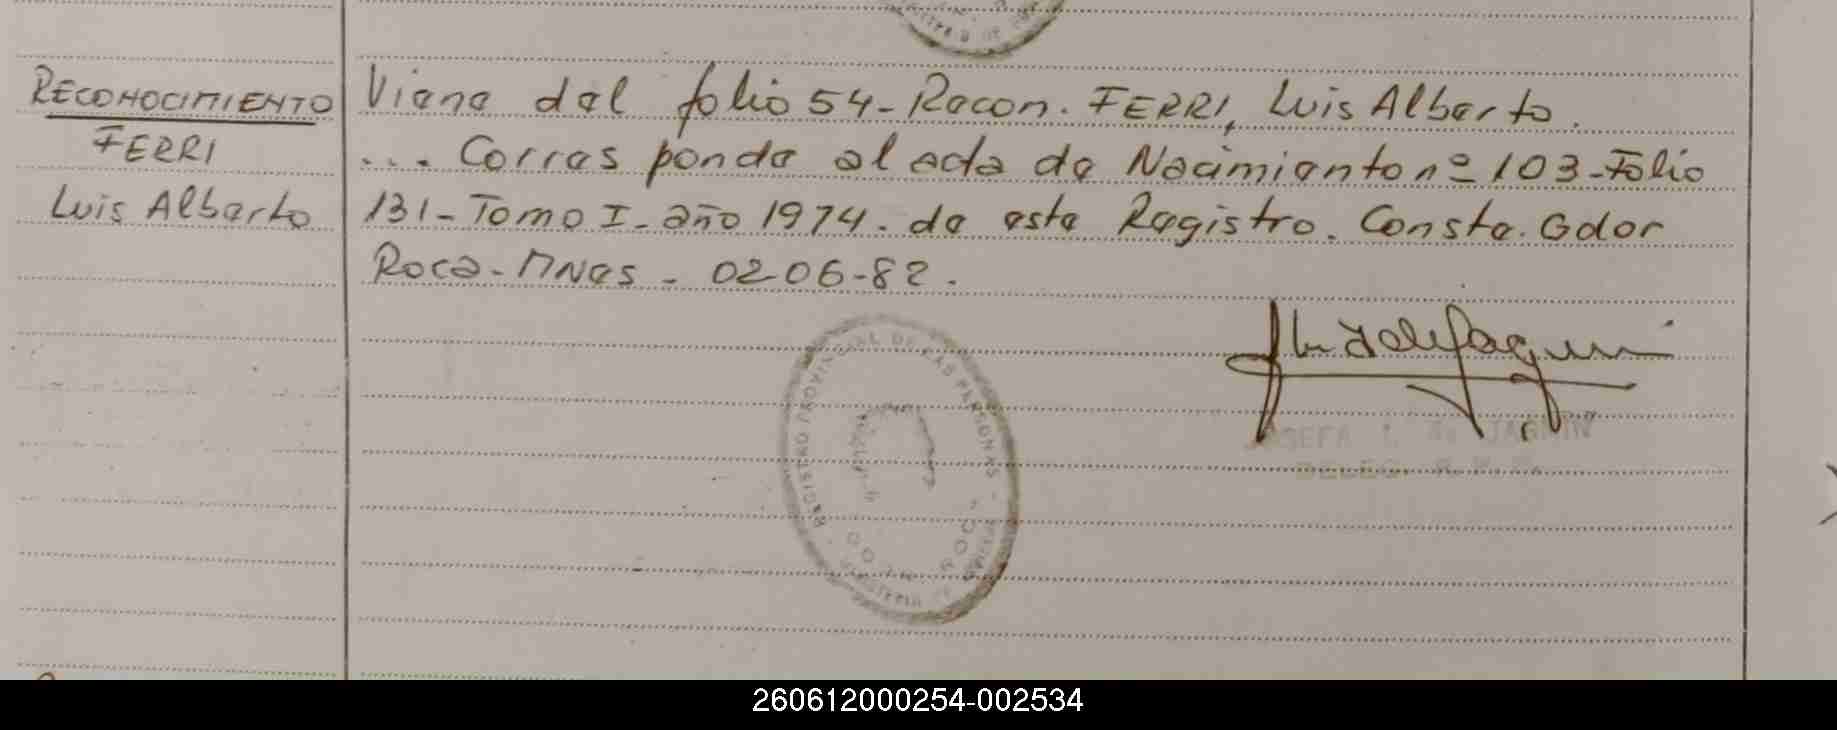 RECONOCIMIENTO
FERRI
Luis Alberto
Viene del folio 54- Recon. FERRI, Luis Alberto.
... Corresponde al acta de Nacimiento nº 103-Folio
131- Tomo I- año 1974. de este Registro. Conste. Gdor
Roca- Mnes - 02-06-82.
REGISTRO PROVINCIAL DE LAS PERSONAS
JAGMIN
DELEG. R.P.P.
260612000254-002534